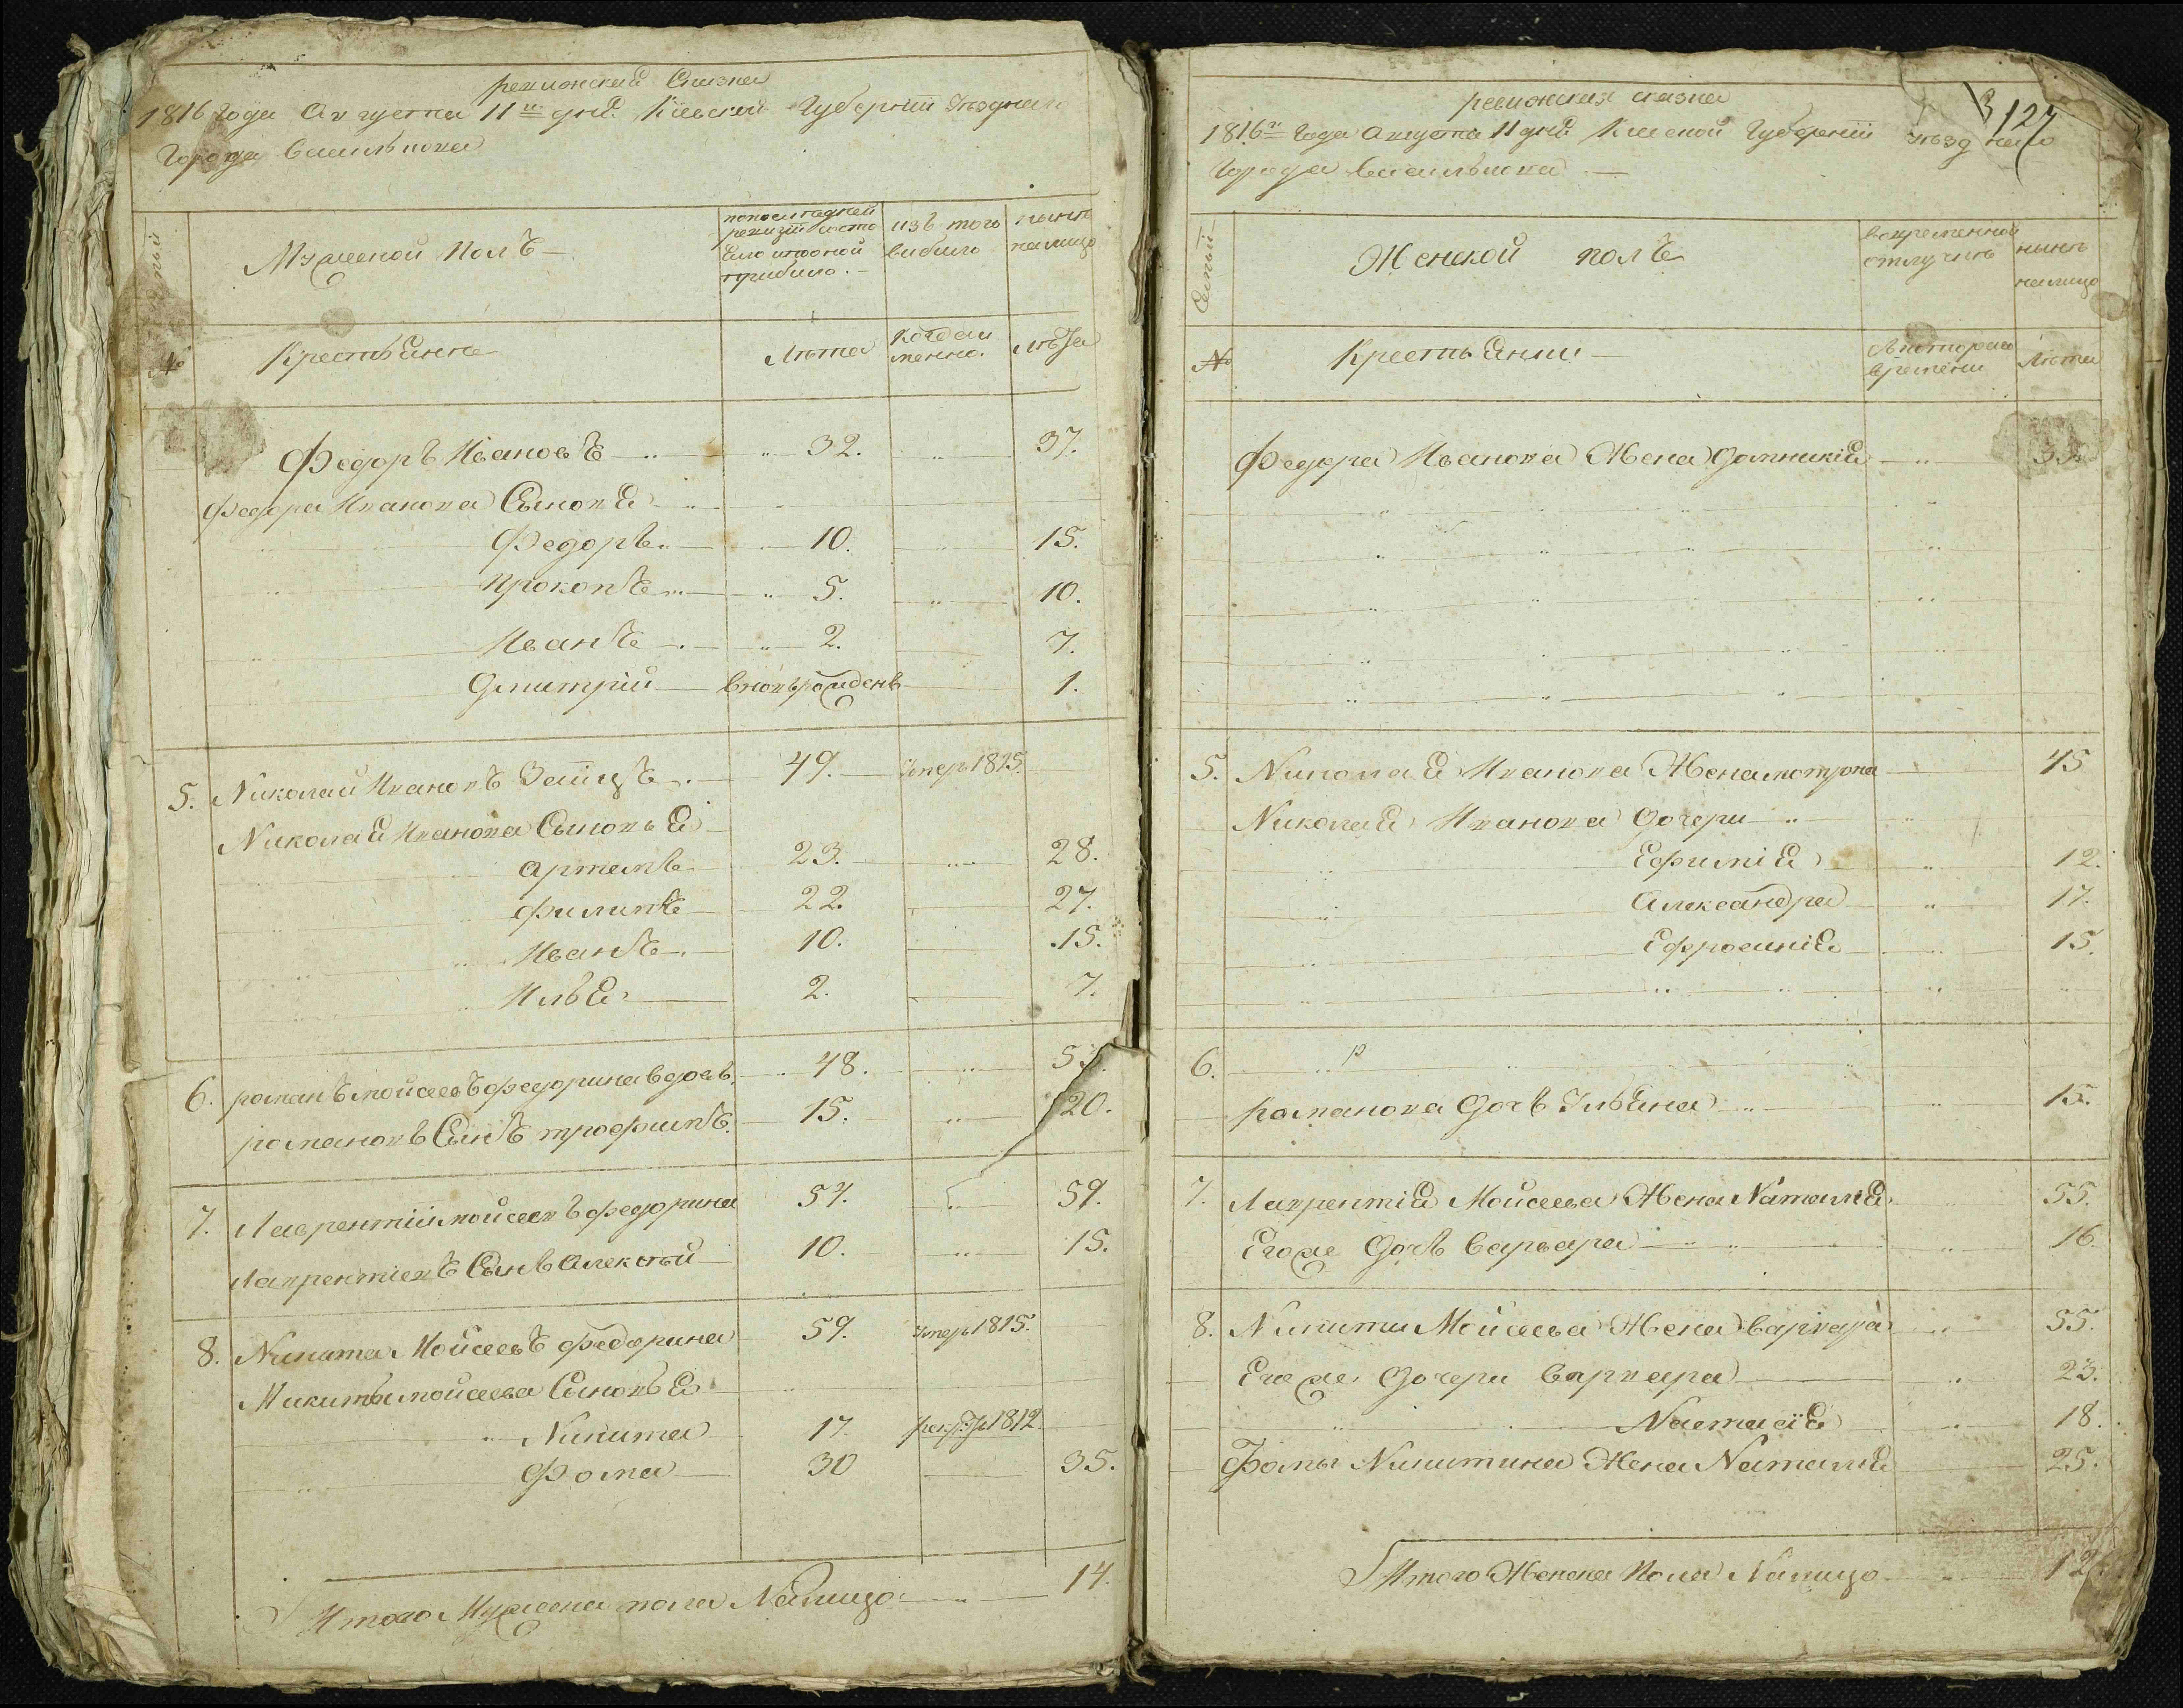 ревижская Сказка
1816 года Августа 11го дня Киевской Губернии уездного
Города Василькова
Семьи
Мужеской полъ
по последней ревизии состояло и после оной прибыло
изъ того выбыло
ныне на лицо
№
Крестьяне
Лета
Когда именно
лета
Федоръ Ивановъ 32. 37.
Федора Иванова Сыновья
Федоръ 10. 15.
Прокопъ 5. 10.
Иванъ 2. 7.
Дмитрий вновьрожденъ 1.
5. Николай Ивановъ Заицъ 49. умеръ 1815.
Николая Иванова Сыновья
Артемъ 23. 28.
Филипъ 22. 27.
Иванъ 10. 15.
Илья 2. 7.
6. романъ мойсеевъ федорина вдовъ 48. 53.
романовъ Сынъ трофимъ 15. 20.
7. Лаврентий мойсеевъ федорина 54. 59.
Лаврентиевъ Сынъ Алексей 10. 15.
8. Никита Мойсеевъ федорина 59. умеръ 1815.
Никиты мойсеева Сыновья
Никита 17. рекрут 1812.
Фома 30 35.
Итого Мужеска пола Налицо 14.
127
ревижская сказка
1816го Года Августа 11 дня Киевской Губернии уезднаго
Города Василькова
Семьи
Женской полъ
во временной отлучке
ныне на лицо
№
Крестьянки
с котораго времени
Лета
Федора Иванова Жена Домникия
5. Николая Иванова Жена мотрона 45
Николая Иванова Дочери
Ефимия 12.
Александра 17.
Ефросиния 15.
6.
романова Дочь Ульяна 15.
7. Лаврентия Мойсеева Жена Наталия 55.
Егоже Дочь Варвара 16.
8. Никиты Мойсеева Жена Варвара 55.
Егоже Дочери Варвара 23.
Настасия 18.
Фомы Никитина Жена Наталия 25.
Итого Женска Пола Налицо 12